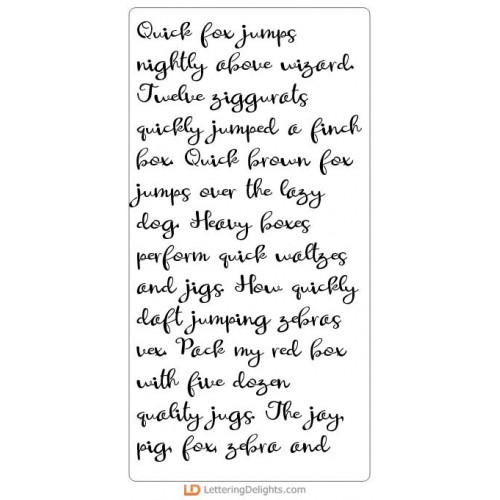 Quick fox jumps
nightly above wizard.
Twelve ziggurats
quickly jumped a finch
box. Quick brown fox
jumps over the lazy
dog. Heavy boxes
perform quick waltzes
and jigs. How quickly
daft jumping zebras
vex. Pack my red box
with five dozen
quality jugs. The jay,
pig, fox, zebra and
LD LetteringDelights.com